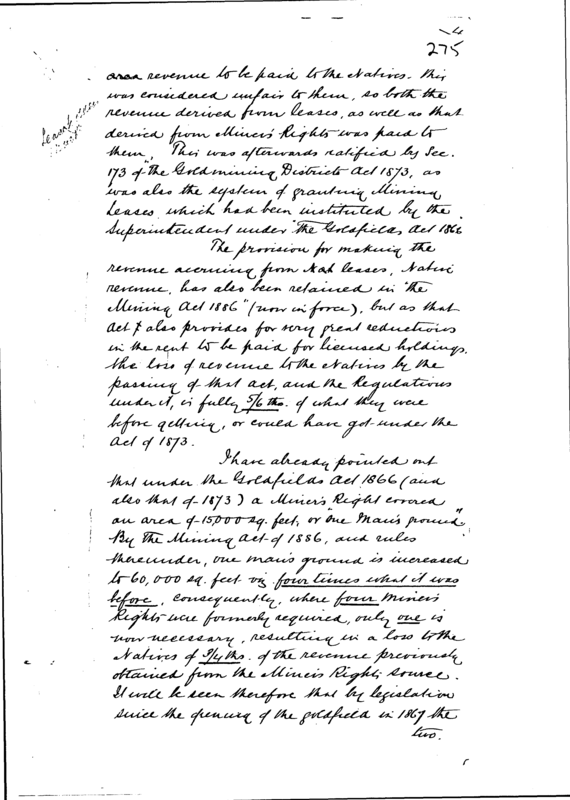 275
area revenue to be paid to the Natives. This
was considered unfair to them, so both the
revenue derived from leases, as well as that
derived from Miner's Rights was paid to
them. This was afterwards ratified by Sec.
173 of "The Goldmining Districts Act 1873, as
was also the system of granting Mining
Leases which had been instituted by the
Superintendent under "The Goldfields Act 1866
The provision for making the
revenue accruing from leases, Native
revenue, has also been retained in "The
Mining Act 1886" (now in force), but as that
Act also provides for very great reductions
in the rent to be paid for licensed holdings,
the loss of revenue to the Natives by the
passing of that Act, and the Regulations
under it, is fully 5/6 ths. of what they were
before getting, or could have got under the
Act of 1873.
I have already pointed out
that under the Goldfields Act 1866 (and
also that of 1873) a Miner's Right covered
an area of 15,000 sq. feet, or "one Man's ground".
By The Mining Act of 1886, and rules
thereunder, one man's ground is increased
to 60,000 sq. feet viz four times what it was
before, consequently, where four Miner's
Rights were formerly required, only one is
now necessary, resulting in a loss to the
Natives of 3/4 ths. of the revenue previously
obtained from the Miner's Rights source.
It will be seen therefore that by legislation
since the opening of the goldfield in 1867 the
two.